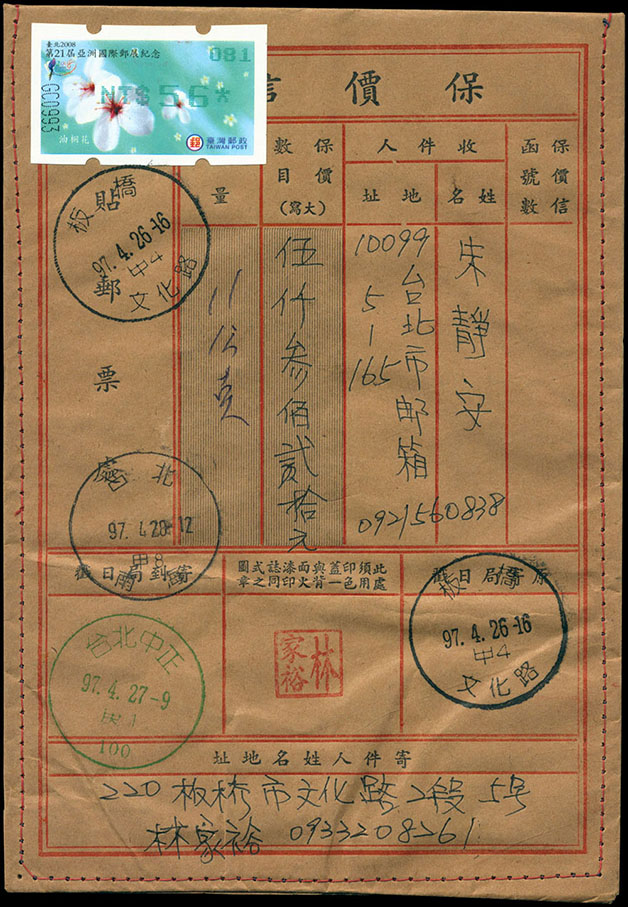 臺北2008
第21屆亞洲國際郵展紀念
081
NT$56*
GC0993
油桐花
郵 臺灣郵政
TAIWAN POST
保價信
保價信函號數
收件人
姓名
地址
朱靜安
10099
台北市邮箱
5-1
165
0921560838
保價數目
(大寫)
伍仟參佰貳拾元
量
11公克
貼郵票處
板橋
97.4.26-16
甲4
文化路
台北
97.4.28-12
甲8
97.4.26-16
板橋
甲4
文化路
原寄局日戳
此處須用印色蓋與背面火漆印誌同式之圖章
寄到局日戳
林家裕
台北中正
97.4.27-9
100
寄件人姓名地址
220板桥市文化路2段5号
林家裕 0933208261